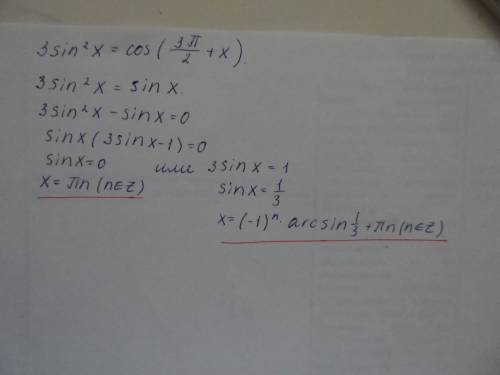 3sin²x = cos(3π/2 + x).
3sin²x = sinx.
3sin²x - sinx = 0
sinx(3sinx-1) = 0
sinx = 0 или 3sinx = 1
x = πn (n∈Z) sinx = 1/3
x = (-1)ⁿ· arcsin 1/3 + πn (n∈Z)